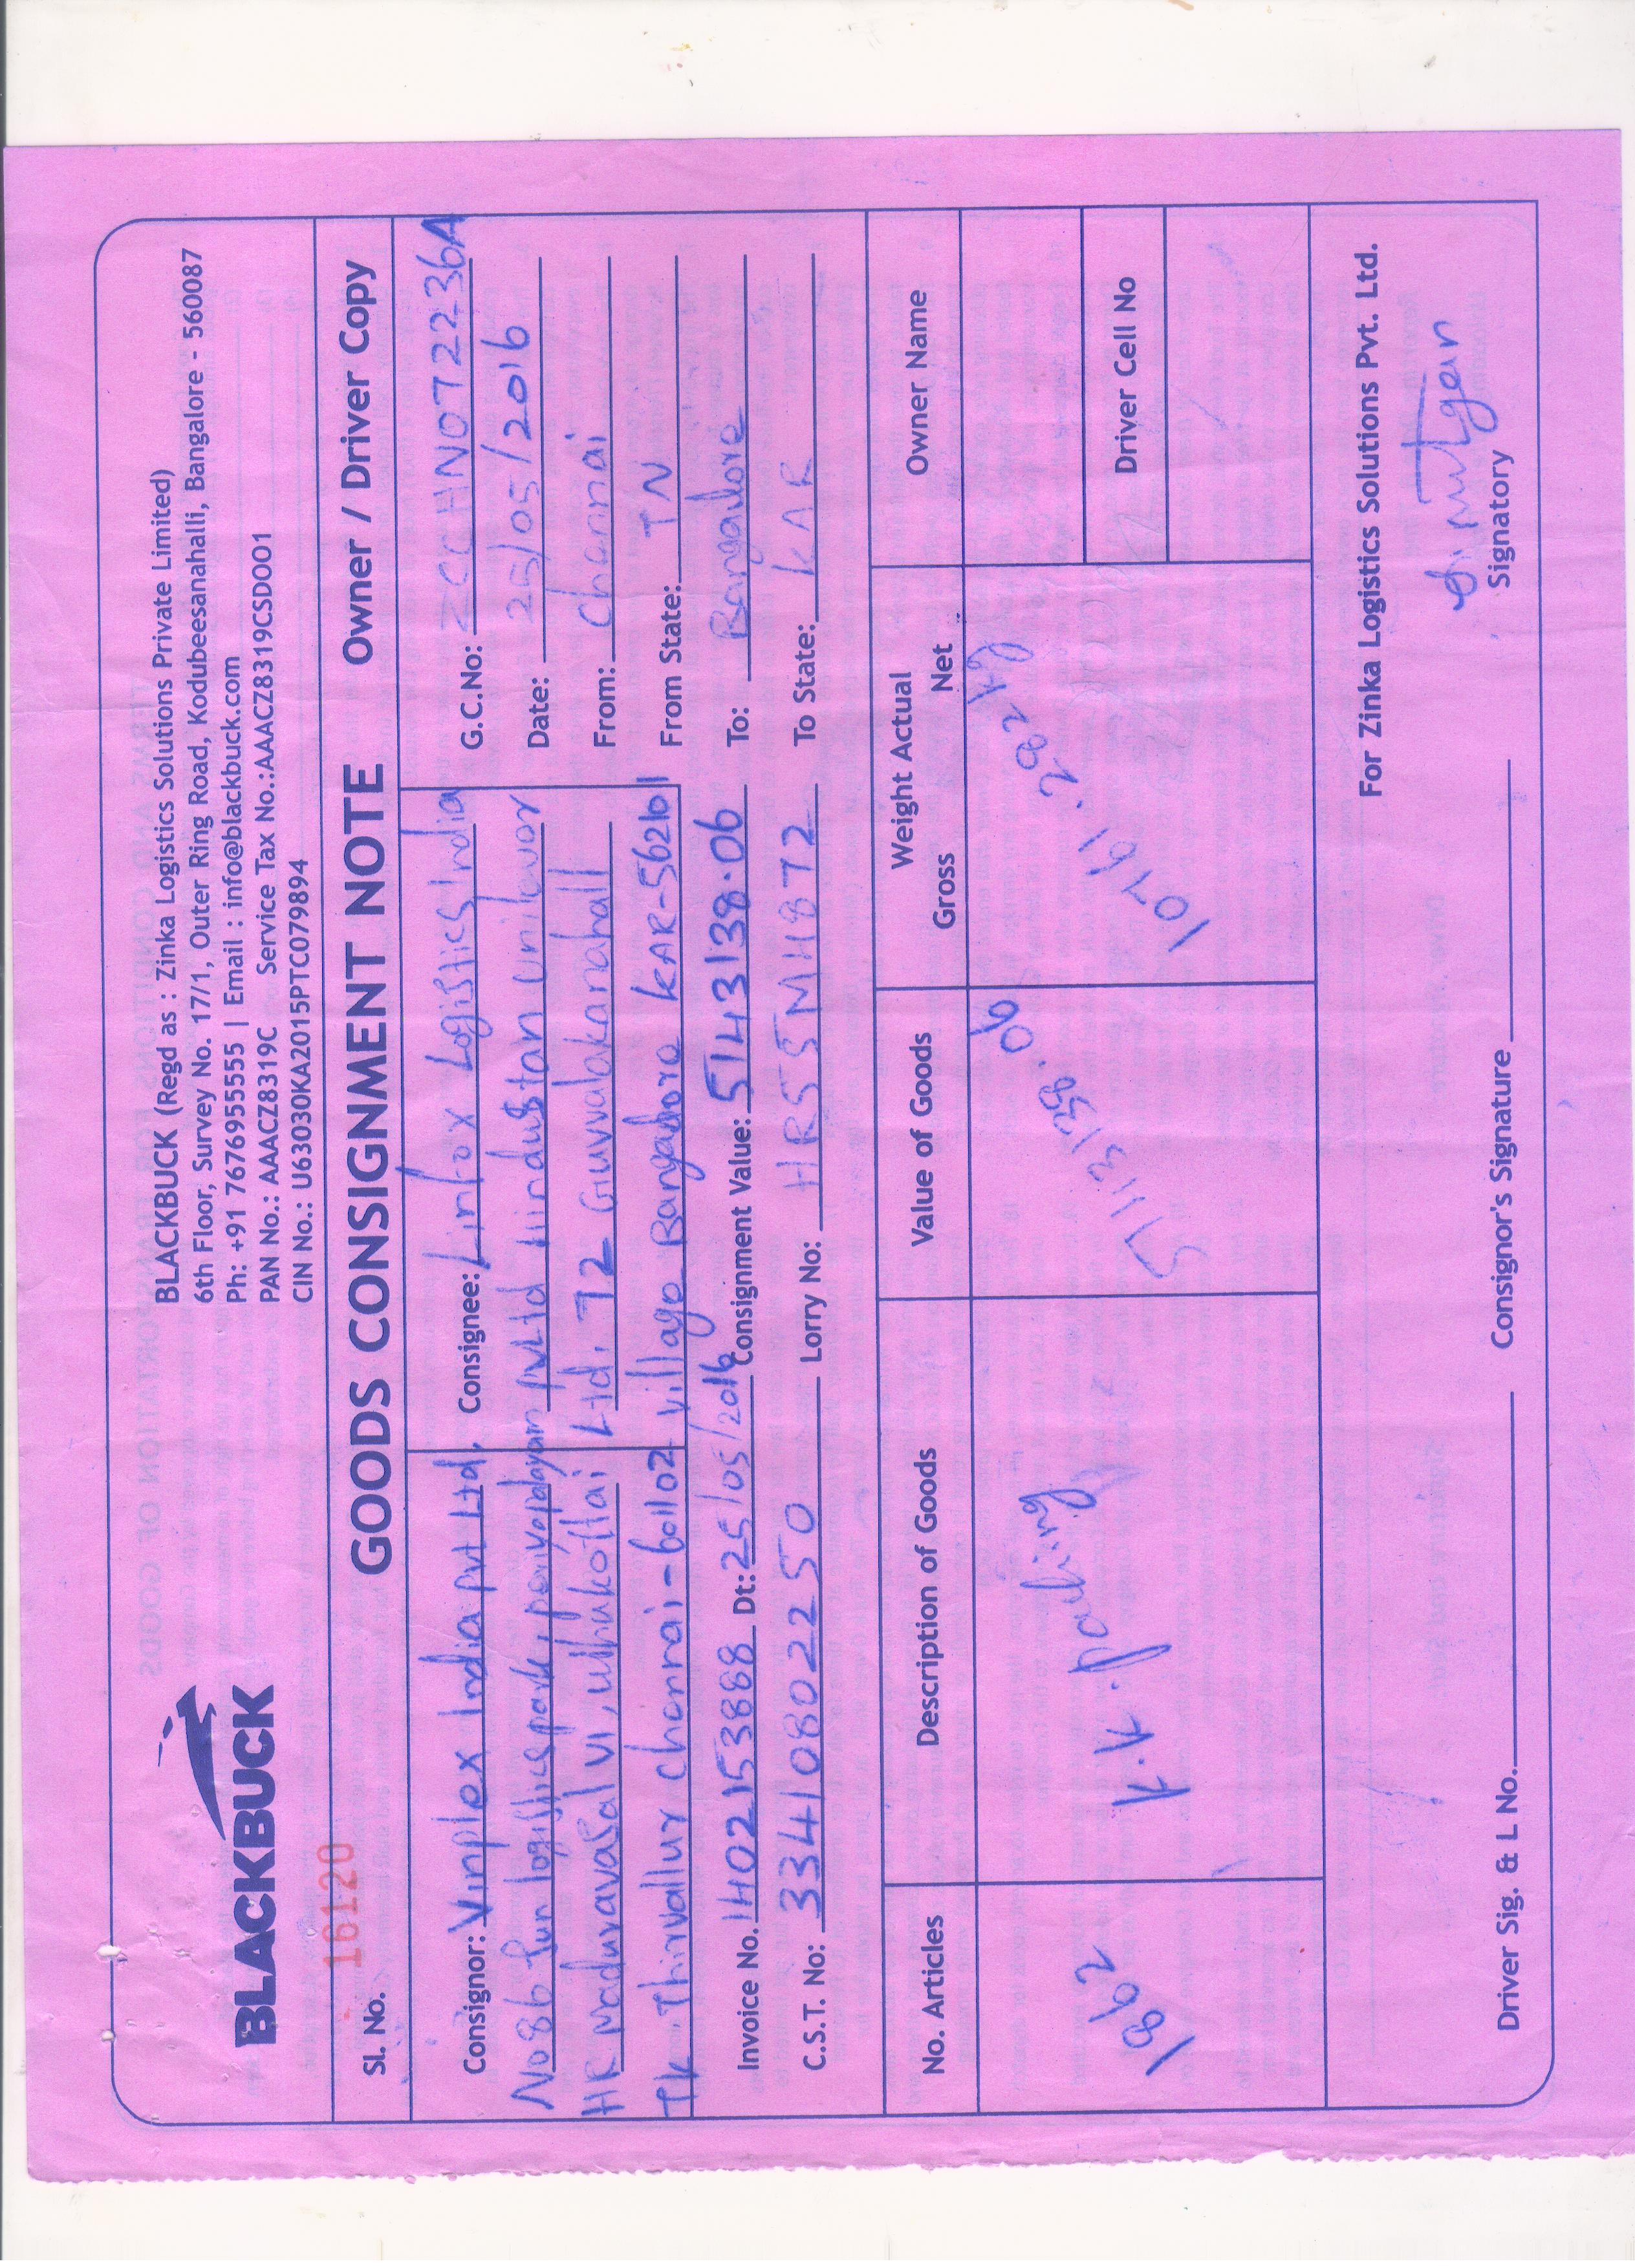 BLACKBUCK
BLACKBUCK (Regd as : Zinka Logistics Solutions Private Limited)
6th Floor, Survey No. 17/1, Outer Ring Road, Kodubeesanahalli, Bangalore - 560087
Ph: +91 7676955555 | Email : info@blackbuck.com
PAN No.: AAACZ8319C Service Tax No.:AAACZ8319CSDOO1
CIN No.: U63030KA2015PTC079894
16120
Sl. No. GOODS CONSIGNMENT NOTE Owner / Driver Copy
Consignor: Vinplex India Pvt Ltd.
No 86 Sun logistics park, periyapalayam
HR Maduravasal Vi, uthukottai
Tk Thirvallur Chennai-601102
Consignee: Linfox Logistics India
Pvt Ltd Hindustan Unilever
Ltd. 72 Guvvalakanahall
Village Bangalore KAR-562101
G.C.No: ZCCHN072236A
Date: 25/05/2016
From: Chennai
From State: TN
Invoice No. 1402153888 Dt: 25/05/2016 Consignment Value: 5143138.06 To: Bangalore
C.S.T. No: 33410802250 Lorry No: HR55M4872 To State: KAR
No. Articles Description of Goods Value of Goods Weight Actual Gross Net Owner Name
1862 K.K. packing 5143138.06 10761.282 kg
Driver Cell No
For Zinka Logistics Solutions Pvt. Ltd.
Driver Sig. & L No. Consignor's Signature Signatory